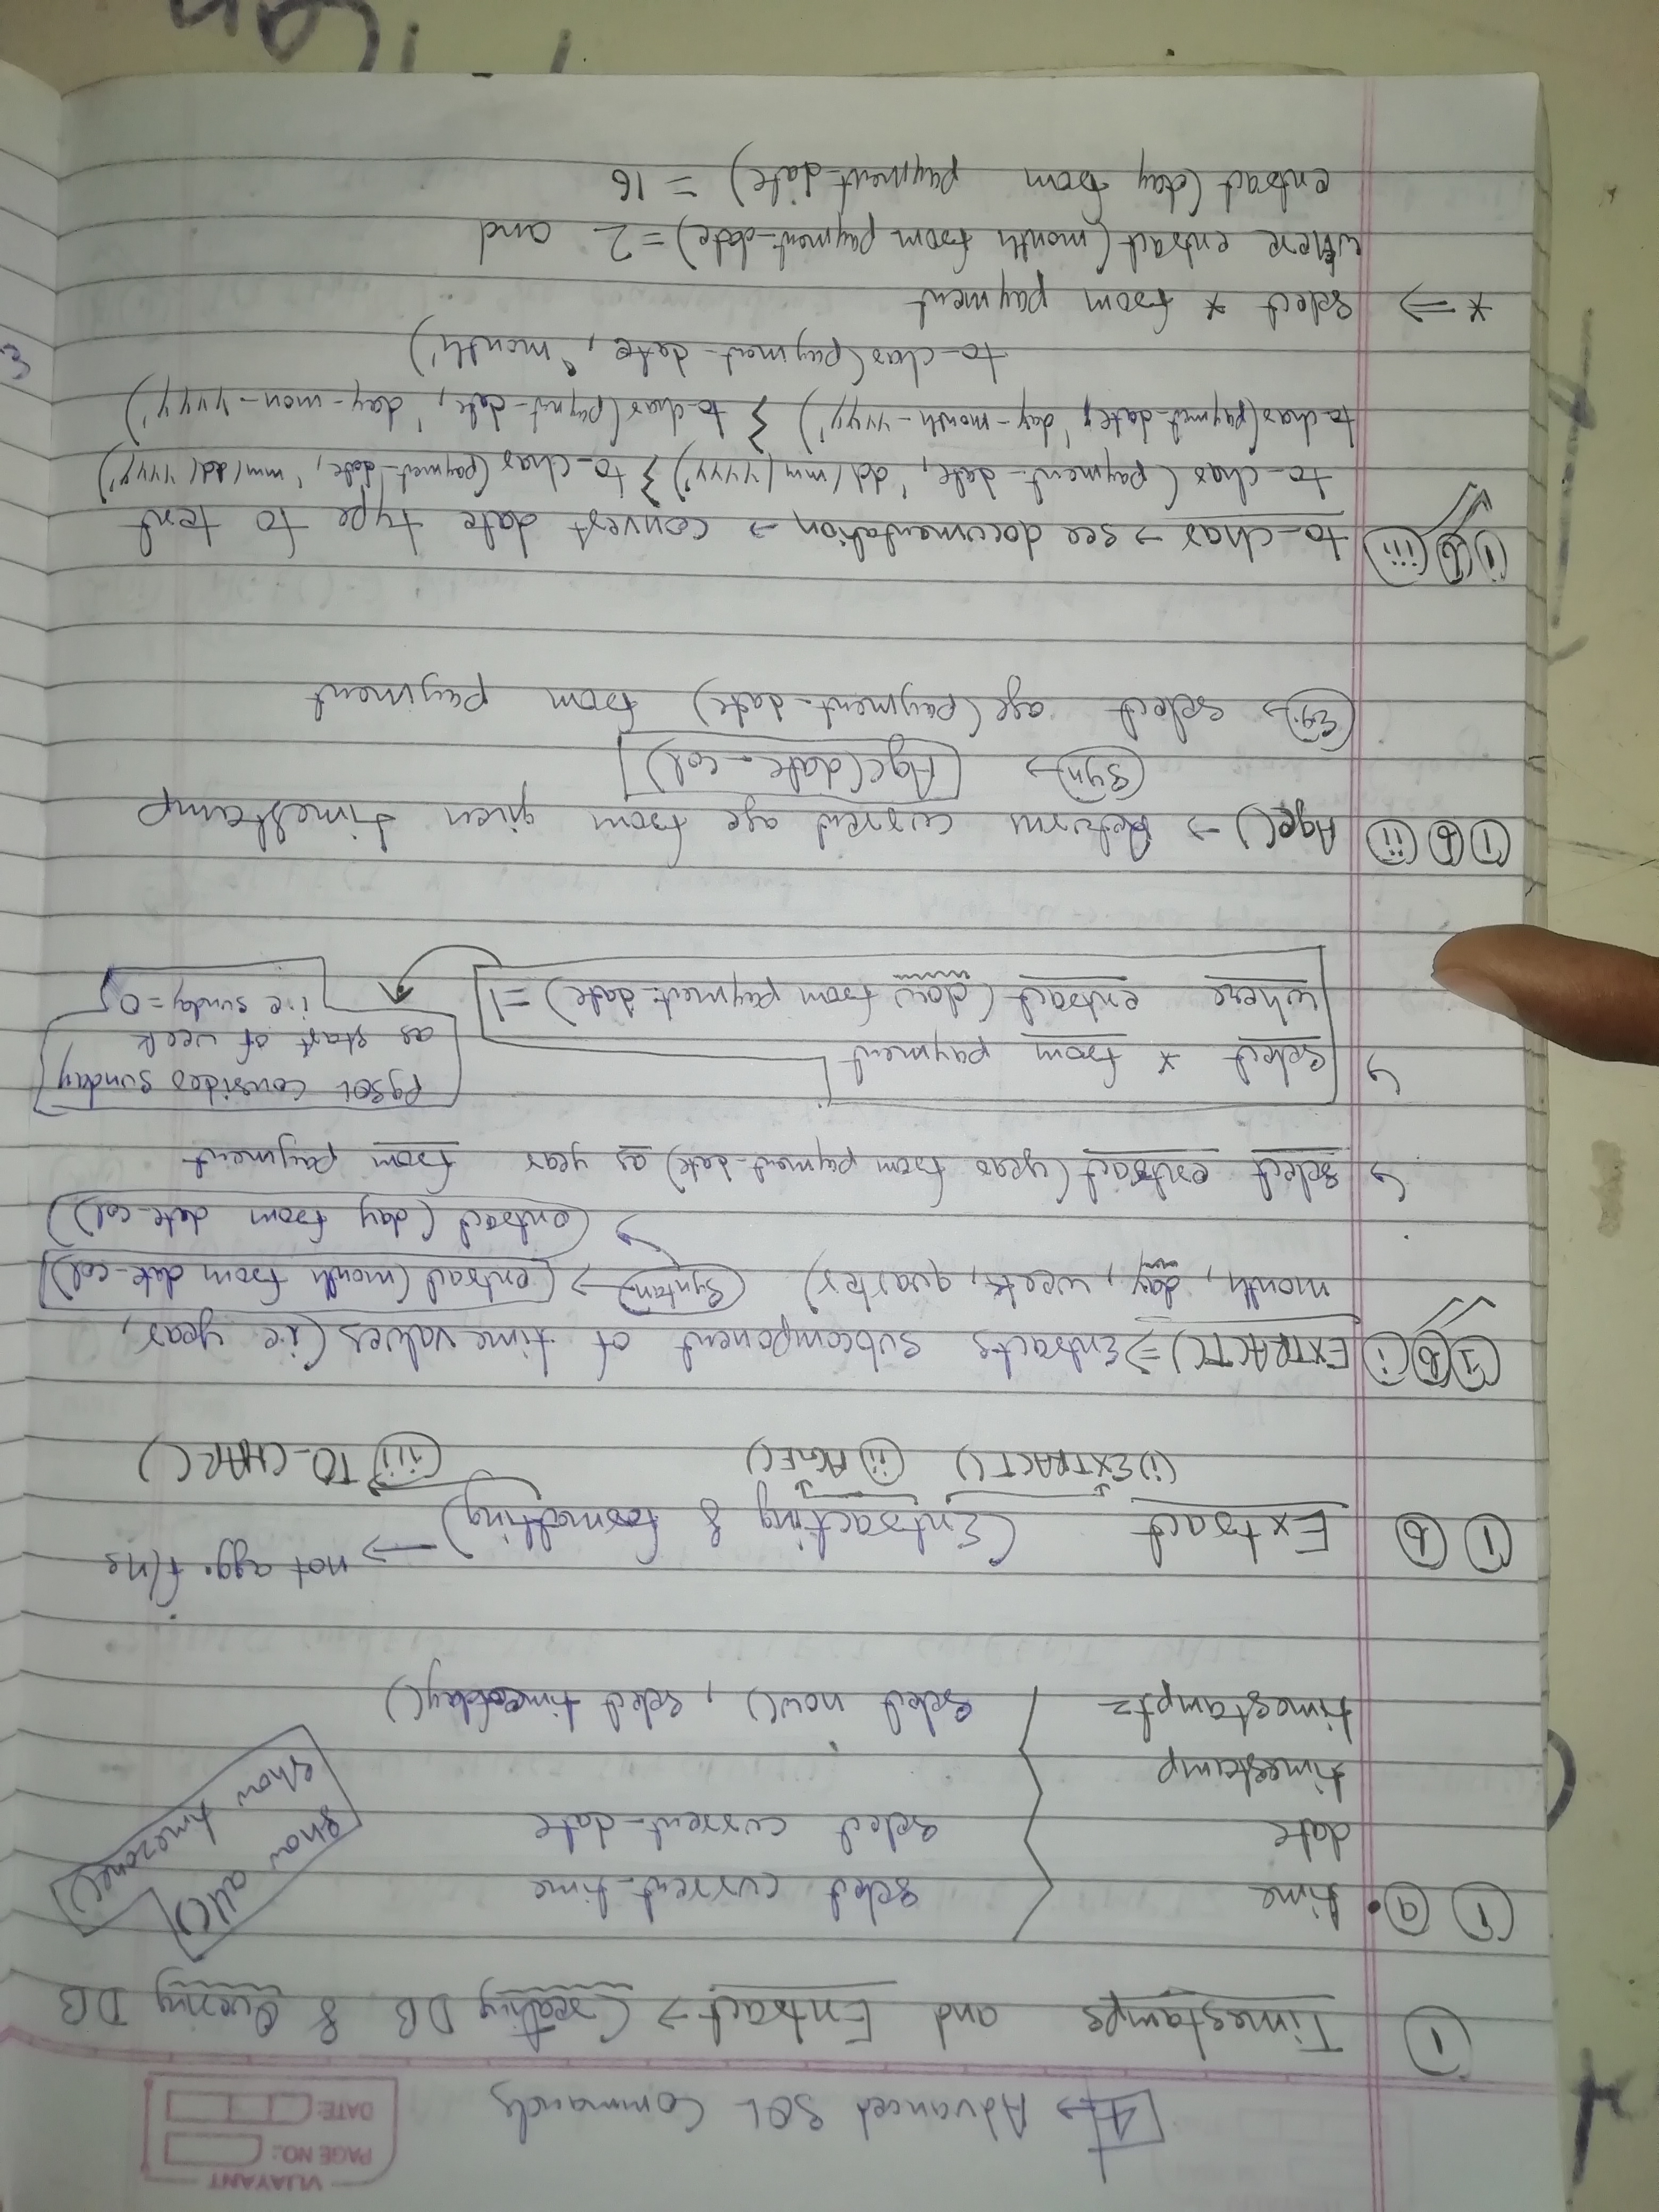 VIJAYANT
PAGE NO.:
DATE:
4 → Advanced SQL Commands
① Timestamps and Extract → Creating DB & Querying DB
① ⓐ • time select current_time
date select current_date
timestamp
timestamptz select now() , select timeofday()
show all()
show timezone()
① ⓑ Extract (Extracting & formatting) → not agg. f/ns
(i) EXTRACT() (ii) AGE() (iii) TO_CHAR()
① ⓑ ⓘ EXTRACT() ⇒ Extracts subcomponent of time values (i.e year,
month, day, week, quarter) Syntax → extract (month from date_col)
→ extract (day from date_col)
↪ select extract (year from payment_date) as year from payment
↪ select * from payment
where extract (dow from payment_date) = 1
PgSQL consider sunday
as start of week
i.e sunday = 0
① ⓑ (ii) Age() → Returns current age from given timestamp
Syn → Age(date_col)
Eg. → select age (payment_date) from payment
① ⓑ (iii) to_char → see documentation → convert date type to text
to_char (payment_date, 'dd/mm/yyyy') } to_char (payment_date, 'mm/dd/yyyy')
to_char (payment_date, 'day-month-yyyy') } to_char (paymnt_date, 'day-mon-yyyy')
to_char (payment_date, 'month')
* ⇒ select * from payment
where extract (month from payment_date) = 2 and
extract (day from payment_date) = 16